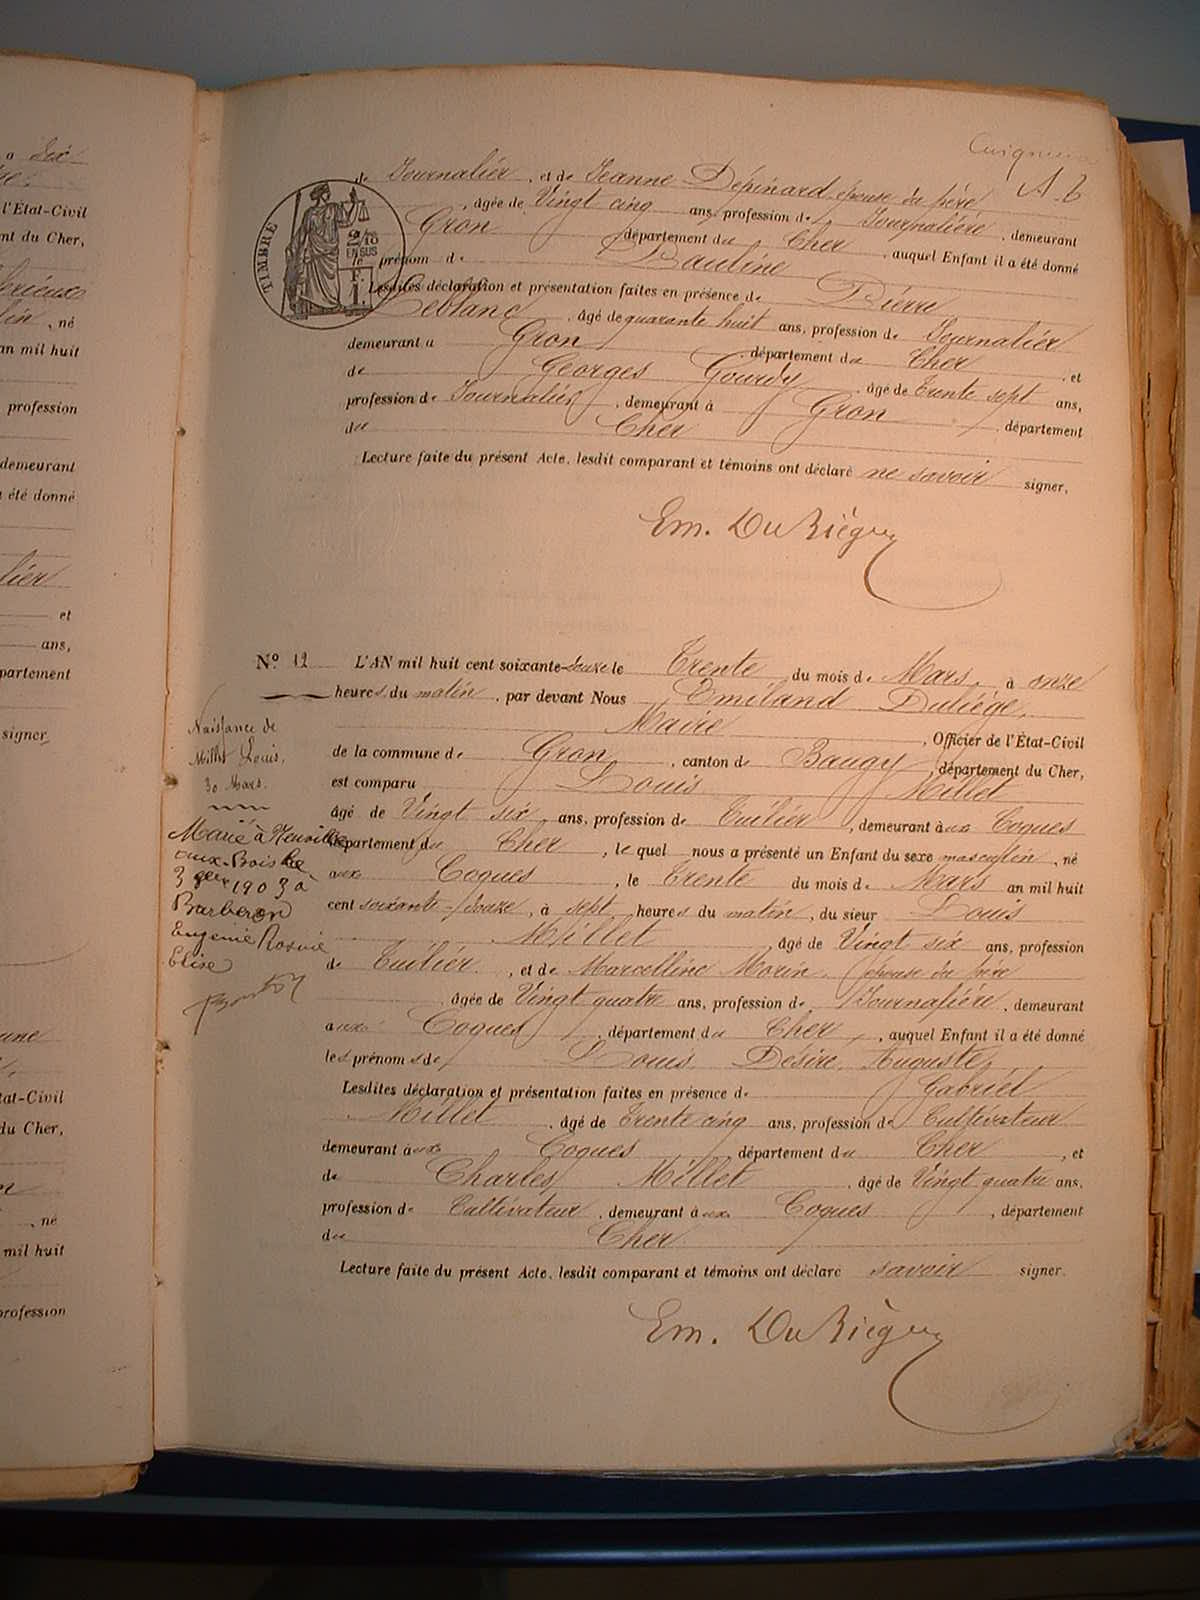 o Six
l'État-Civil
nt du Cher,
, né
an mil huit
profession
demeurant
a été donné
lier
et
ans,
partement
signer,
tat-Civil
du Cher,
, né
mil huit
profession
A. b
de Journalier, et de Jeanne Depinard épouse du père
, âgée de Vingt cinq ans, profession de Journalière, demeurant
Gron département du Cher, auquel Enfant il a été donné
TIMBRE
2/10
EN SUS
prénom de Pauline
Lesdites déclaration et présentation faites en présence de Pierre
Leblanc, âgé de quarante huit ans, profession de Journalier
demeurant à Gron département du Cher, et
de Georges Gourdy âgé de Trente sept ans,
profession de Journalier, demeurant à Gron, département
du Cher
Lecture faite du présent Acte, lesdit comparant et témoins ont déclaré ne savoir signer,
Em. Duliège
Nº 12 L'AN mil huit cent soixante-douze le Trente du mois de Mars, à onze
heures du matin, par devant Nous Emiland Duliége,
Maire, Officier de l'État-Civil
de la commune de Gron, canton de Baugy, département du Cher,
est comparu Louis Millet
âgé de Vingt six ans, profession de Tuilier, demeurant aux Coques
département du Cher, le quel nous a présenté un Enfant du sexe masculin, né
aux Coques, le Trente du mois de Mars an mil huit
cent soixante-douze, à sept heures du matin, du sieur Louis
Millet, âgé de Vingt six ans, profession
de Tuilier, et de Marcelline Morin, épouse du père
, âgée de Vingt quatre ans, profession de Journalière, demeurant
aux Coques, département du Cher, auquel Enfant il a été donné
les prénoms de Louis Désire Auguste,
Lesdites déclaration et présentation faites en présence de Gabriel
Millet, âgé de Trente cinq ans, profession de Cultivateur
demeurant aux Coques département du Cher, et
de Charles Millet, âgé de Vingt quatre ans,
profession de Cultivateur, demeurant aux Coques, département
du Cher
Lecture faite du présent Acte, lesdit comparant et témoins ont déclaré savoir signer.
Em. Duliège
Naissance de
Millet Louis,
30 Mars.
Marié à
aux-Bois le
3 1903 à
Barberon
Eugénie Rosine
Elise